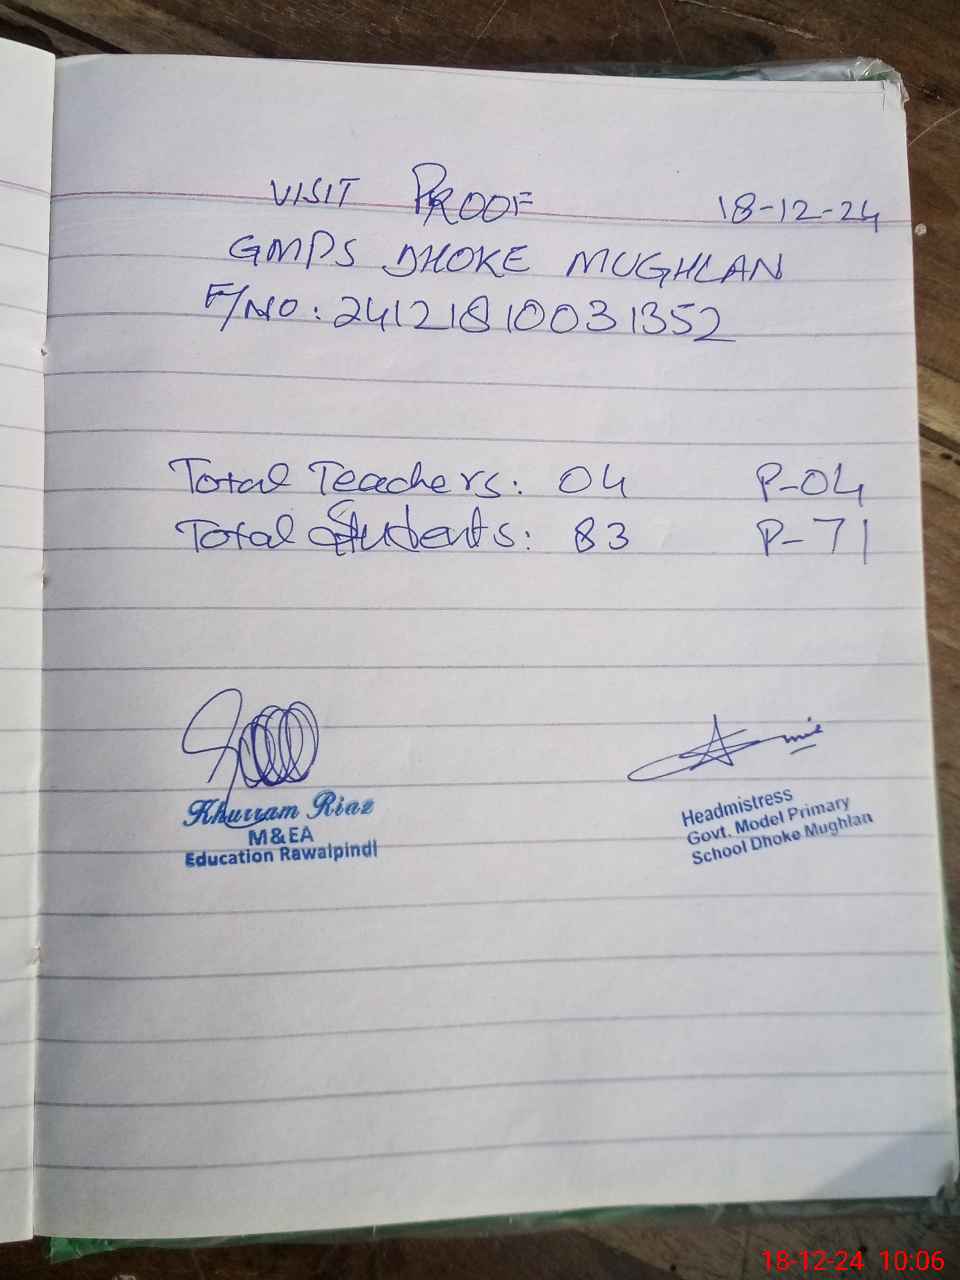 VISIT PROOF 18-12-24
GMPS DHOKE MUGHLAN
F/NO: 24121810031352
Total Teachers: 04 P-04
Total Students: 83 P-71
Khurram Riaz
M&EA
Education Rawalpindi
Headmistress
Govt. Model Primary
School Dhoke Mughlan
18-12-24 10:06